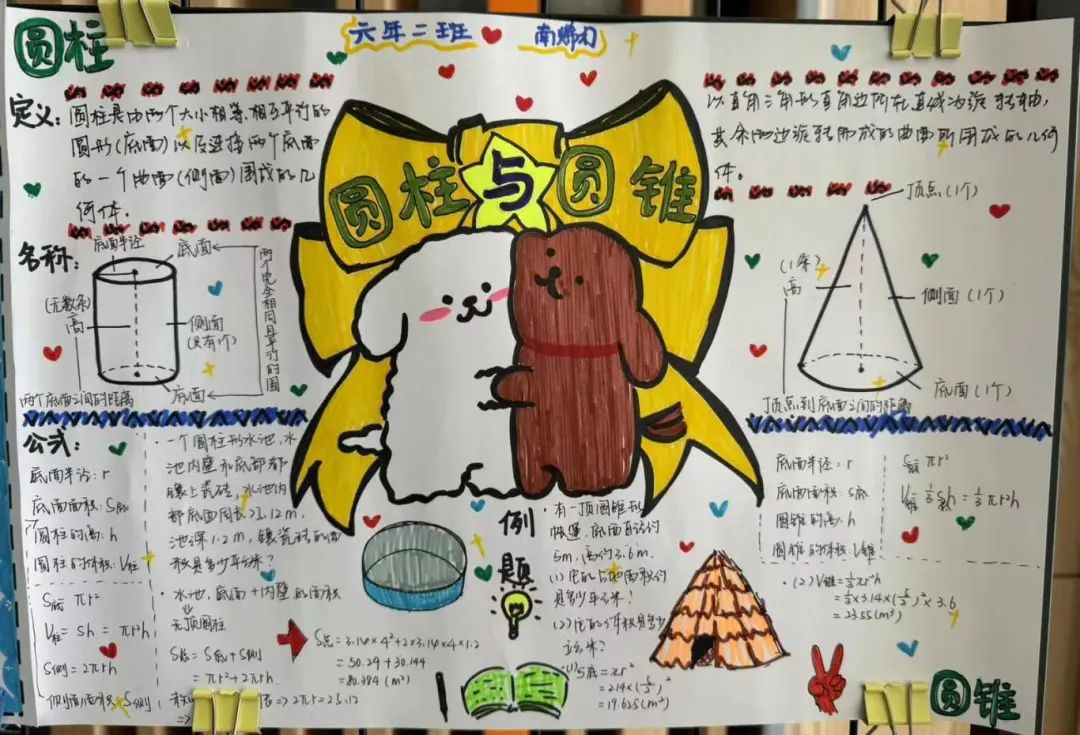 圆柱
六年二班
圆柱与圆锥
定义:圆柱是由两个大小相等、相互平行的
圆形(底面)以及连接两个底面
的一个曲面(侧面)围成的几
何体.
名称:
底面半径
底面
(无数条)
高
侧面
(只有1个)
底面
两个完全相同且平行的圆
两个底面之间的距离
以直角三角形的直角边所在直线为旋转轴,
其余两边旋转而成的曲面所围成的几何
体。
顶点(1个)
(1条)
高
侧面(1个)
底面(1个)
顶点到底面之间的距离
公式:
底面半径:r
底面面积:S底
圆柱的高:h
圆柱的体积:V柱
S底 πr²
V柱= sh = πr²h
S侧=2πrh
侧面面积:S侧
·一个圆柱形水池,水
池内壁和底部都
镶上瓷砖,水池内
部底面周长25.12m,
池深1.2m,镶瓷砖的面
积是多少平方米?
·水池,底面+内壁的面积
无顶圆柱
S总=S底+S侧
=πr²+2πrh
⇒2πr=25.12
S总=3.14×4²+2×3.14×4×1.2
=50.24+30.144
=80.384(m²)
例题
·有一顶圆锥形
帐篷,底面直径约
5m,高约3.6m.
(1)它的占地面积约
是多少平方米?
(2)它的体积是多少
立方米?
(1)S底=πr²
=3.14×(5/2)²
=19.625(m²)
底面半径:r
底面面积:S底
圆锥的高:h
圆锥的体积:V锥
S底 πr²
V锥 1/3 S底h = 1/3 πr²h
·(2)V锥=1/3πr²h
=1/3×3.14×(5/2)²×3.6
=23.55(m³)
圆锥